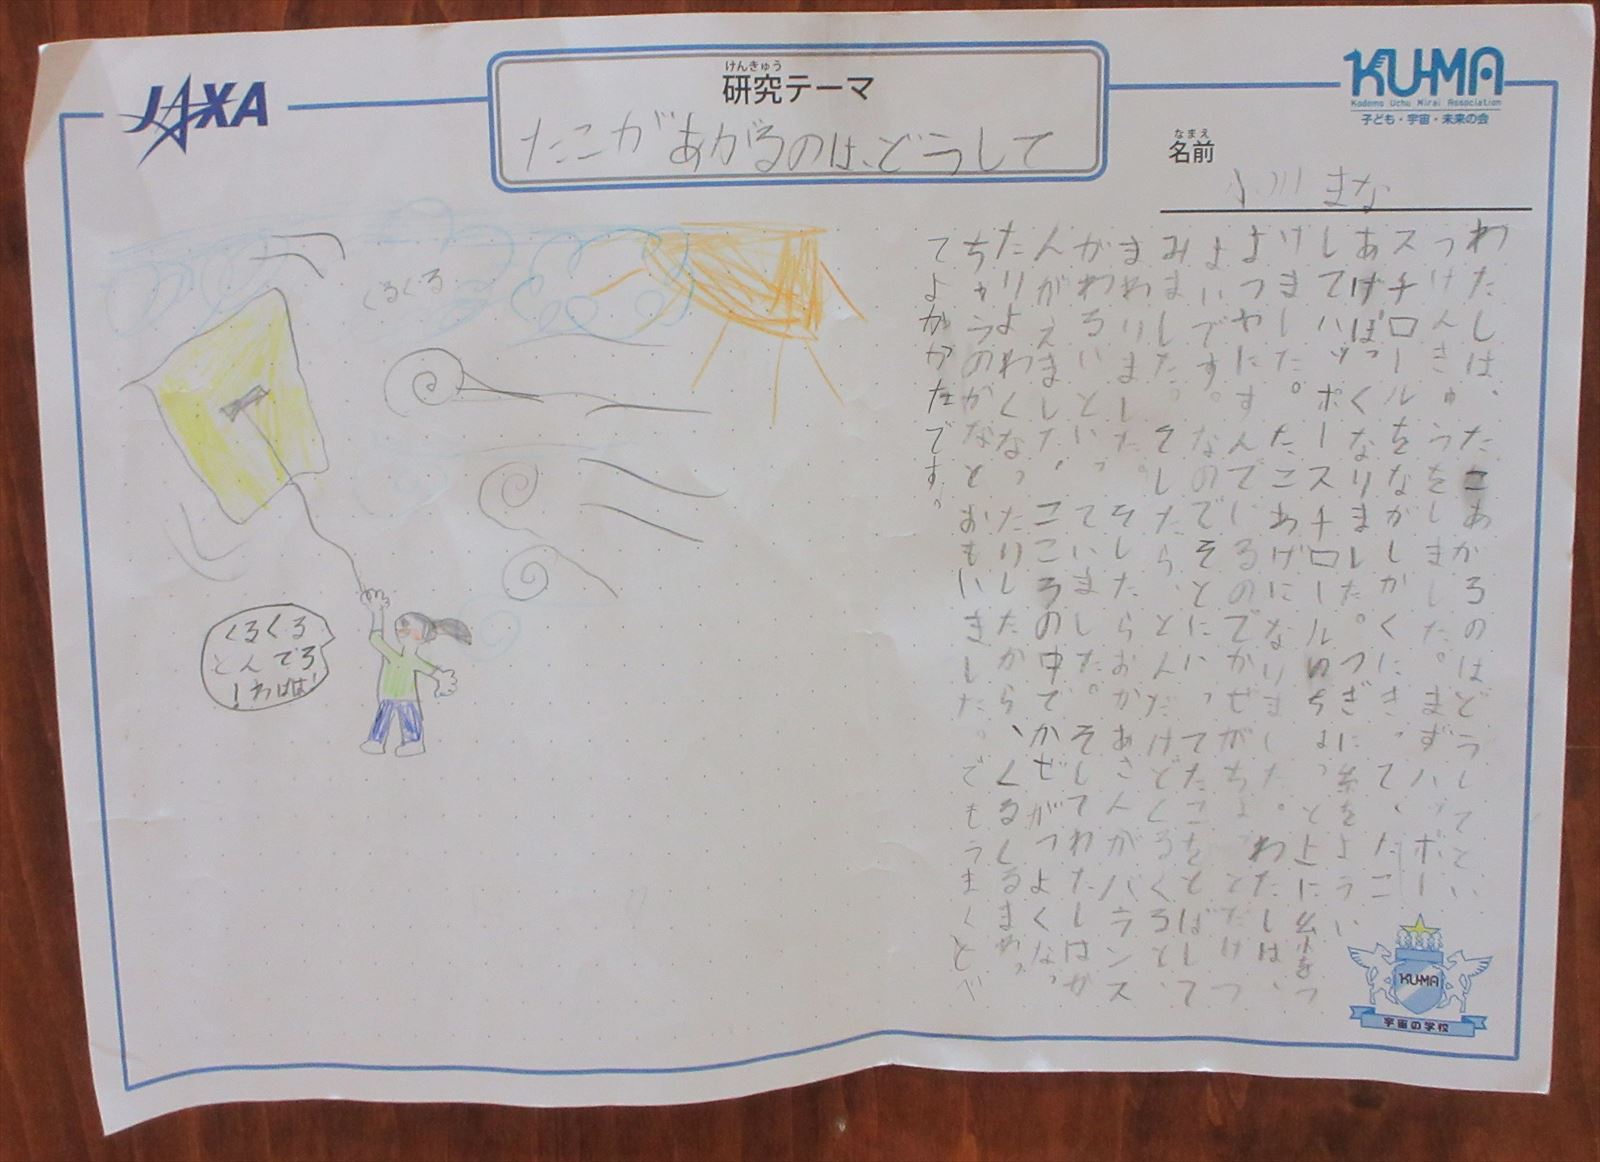 JAXA
けんきゅう
研究テーマ
たこがあがるのは、どうして
KU-MA
Kodomo Uchu Mirai Association
子ども・宇宙・未来の会
なまえ
名前
小川 まな
わたしは、たこあがろのはどうしてとい
つけんきゅうをしました。まずハッポー
スチロールをながしかくにきって、たこ
あげぽっくなりました。つぎに糸をようい
してハッポースチロールのちょっと上に糸をつ
けました。たこあげになりました。わたしは、
よつやにすんでいるのでかぜがちょっとだけつ
よいです。なのでそとにいってたこをとばして
みました。そしたら、とんだけどくるくろと、
まわりました。そしたらおかあさんがバランス
がわるいといっていました。そしてわたしはか
んがえました。こころの中でかぜがつよくなっ
たりよわくなったりしたから、くるくるまわっ
ちゃうのかなとおもいました。でもうまくとべ
てよかかたです。
くるくる
くるくる
とんでろ
！わはは！
KU-MA
宇宙の学校